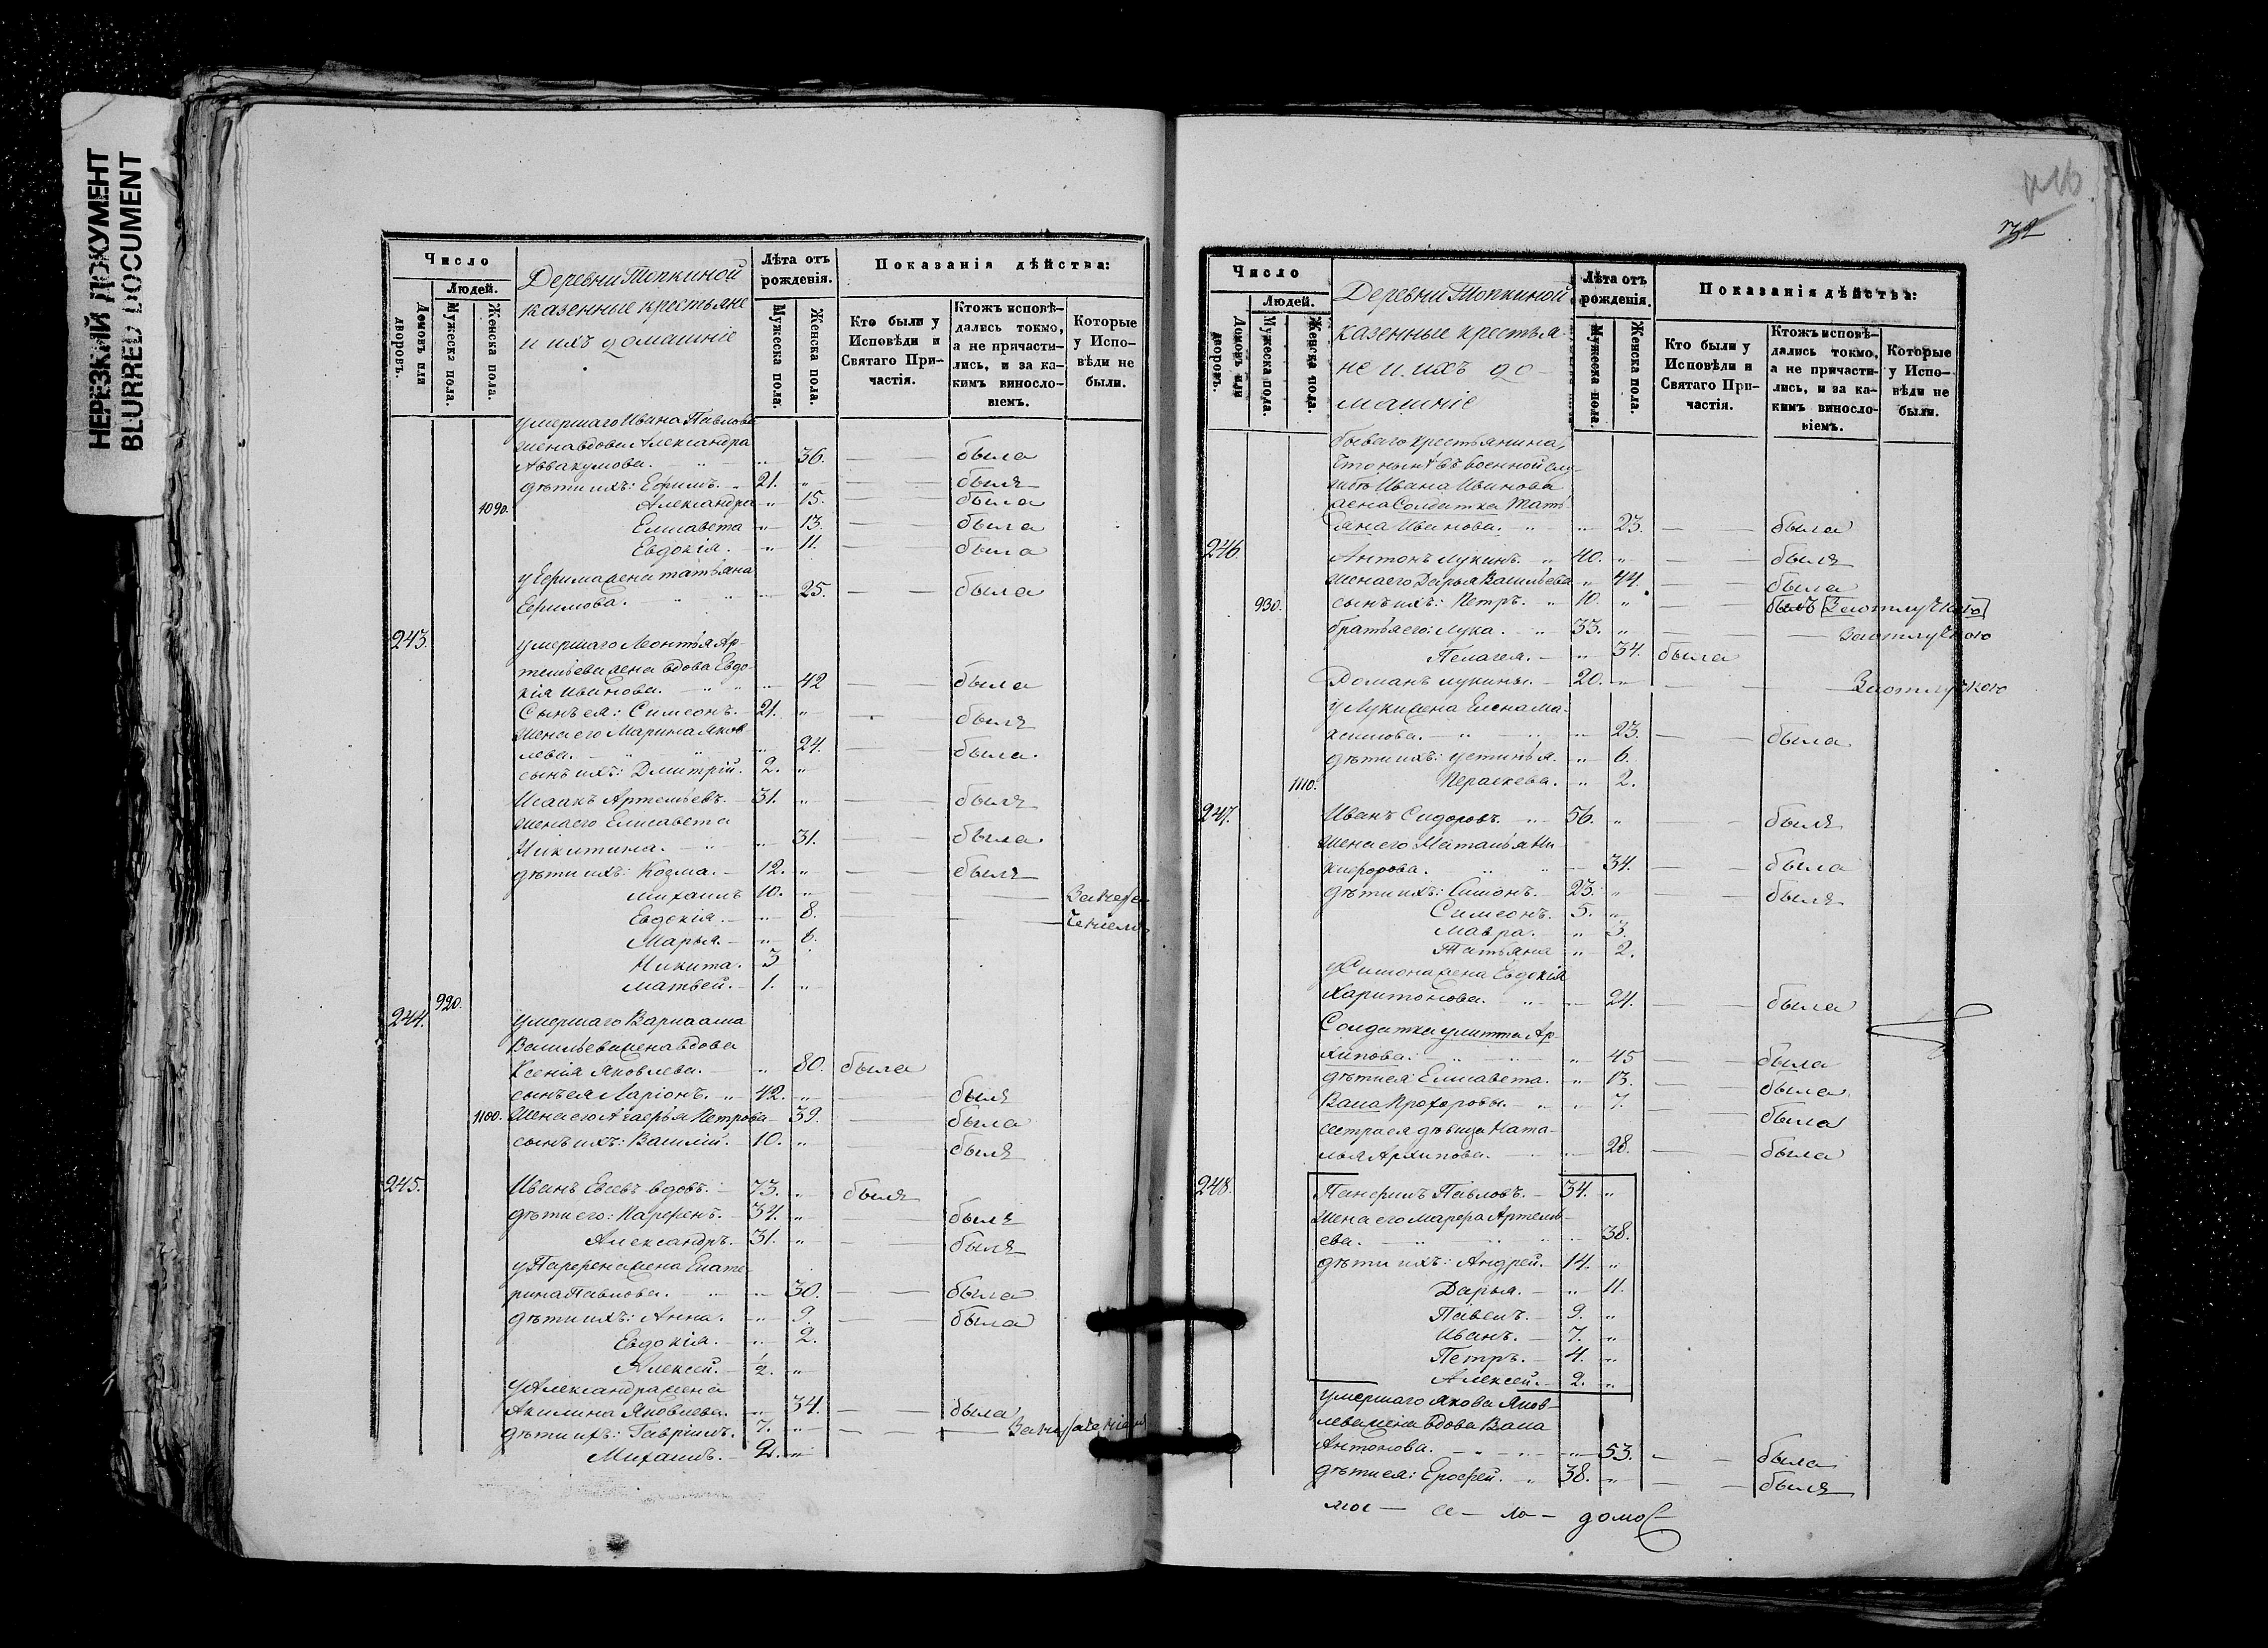 НЕРЕЗКИЙ ДОКУМЕНТ
BLURRED DOCUMENT
Число
Людей.
Домовъ или дворовъ.
Мужеска пола.
Женска пола.
Деревни Топкиной
казенные крестьяне
и ихъ домашніе
Лѣта отъ рожденія.
Мужеска пола.
Женска пола.
Показанія дѣйства:
Кто были у Исповѣди и Святаго Причастія.
Ктожъ исповѣдались токмо, а не причастились, и за какимъ винословіемъ.
Которые у Исповѣди не были.
умершаго Ивана Павлова
жена вдова Александра
Аввакумова. 36. была
дѣти ихъ: Ефимъ. 21. былъ
1090. Александра 15. была
Елисавета 13. была
Евдокія. 11. была
у Ефима жена Татьяна
Ефимова. 25. была
243. умершаго Леонтья Ар-
темьева жена вдова Евдо-
кія Иванова. 42 была
Сынъ ея: Симеонъ. 21. былъ
жена его Марина Яков
лева. 24. была.
сынъ ихъ: Дмитрій. 2.
Исаакъ Артемьевъ. 31. былъ
жена его Елисавета
Никитина. 31. была.
дѣти ихъ: Козма. 12. былъ
Михаилъ 10.
Евдокія. 8.
Марья. 6.
Никита. 3
Матвей. 1.
920.
244. умершаго Варлаама
Васильева жена вдова
Ксенія Яковлева. 80. была
сынъ ея Ларіонъ. 42. былъ
1100. жена его Агафья Петрова 39. была
сынъ ихъ: Василій. 10. былъ
245. Иванъ Евсевъ вдовъ. 73. былъ
дѣти его: Парфенъ. 34. былъ
Александръ. 31. былъ
у Парфена жена Екате-
рина Павлова. 30. была
дѣти ихъ: Анна. 9. была
Евдокія. 2.
Алексей. ½.
у Александра жена
Акилина Яковлева. 34. была
дѣти ихъ: Гавріилъ. 7.
Михаилъ. 2.
Число
Людей.
Домовъ или дворовъ.
Мужеска пола.
Женска пола.
Деревни Топкиной
казенные крестья-
не и ихъ до-
машніе
Лѣта отъ рожденія.
Мужеска пола.
Женска пола.
Показанія дѣйства:
Кто были у Исповѣди и Святаго Причастія.
Ктожъ исповѣдались токмо, а не причастились, и за какимъ винословіемъ.
Которые у Исповѣди не были.
бываго крестьянина,
что нынѣ въ военной слу-
жбѣ Ивана Иванова
жена Солдатка Тать
яна Иванова. 23. была
246. Антонъ Лукинъ. 40. былъ
жена его Дарья Васильева 44. была
930. сынъ ихъ: Петръ. 10. былъ За отлучкою
братья его: Лука. 33. За отлучкою
Пелагея. 34. была
Романъ Лукины. 20. За отлучкою
у Луки жена Елена Ма-
ксимова. 23. была
дѣти ихъ: Устинья. 6.
1110. Параскева. 2.
247. Иванъ Сидоровъ. 56. былъ
жена его Наталья Ни-
кифорова. 34. была
дѣти ихъ: Симонъ. 23. былъ
Симеонъ. 5.
Мавра. 3.
Татьяна 2.
у Симона жена Евдокія
Харитонова. 24. была
Солдатка Улитта Ар-
хипова. 45 была
дѣти ея: Елисавета. 13. была
Васа Прохоровы. 7. была
сестра ея дѣвица Ната-
лья Архипова. 28. была
248. Панфилъ Павловъ. 34.
жена его Марфа Артемь-
ева. 38.
дѣти ихъ: Андрей. 14.
Дарья. 11.
Павелъ. 9.
Иванъ. 7.
Петръ. 4.
Алексей. 2.
умершаго Якова Яков-
лева жена вдова Васа
Антонова. 53. была
дѣти ея: Ерофей. 38. былъ